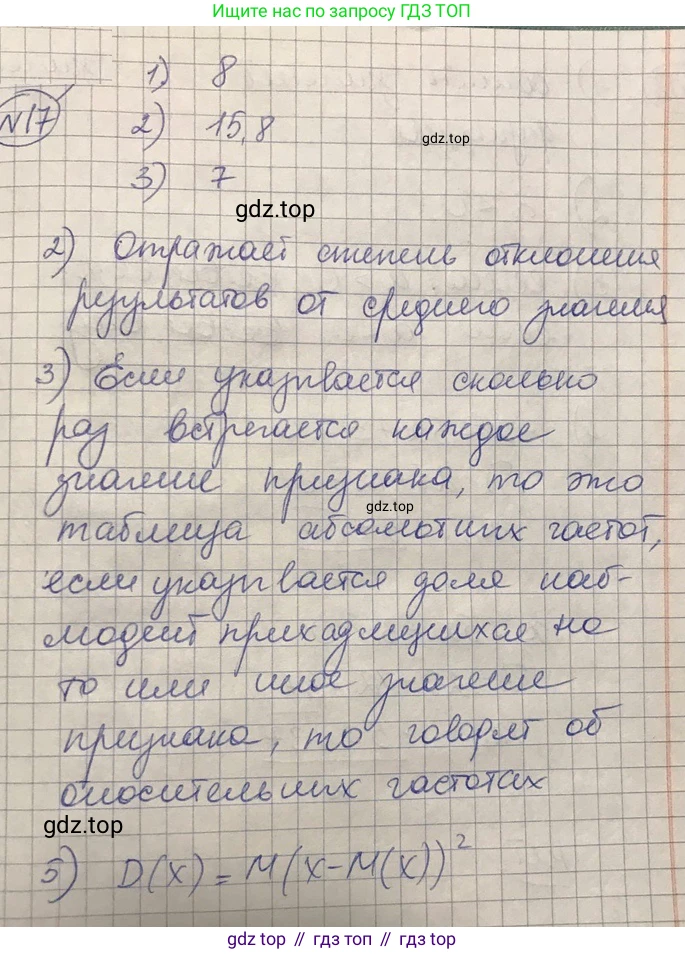 Ищите нас по запросу ГДЗ ТОП
1) 8
N17
2) 15,8
gdz.top
3) 7
gdz.top
2) Отражает степень отклонения
результатов от среднего значения
3) Если указывается сколько
раз встречается каждое
значение признака, то это
gdz.top
таблица абсолютных частот,
если указывается доля наб-
людений приходящихся на
то или иное значение
признака, то говорят об
относительных частотах
gdz.top
5) D(X) = M(X-M(X))²
gdz top // гдз топ // gdz.top